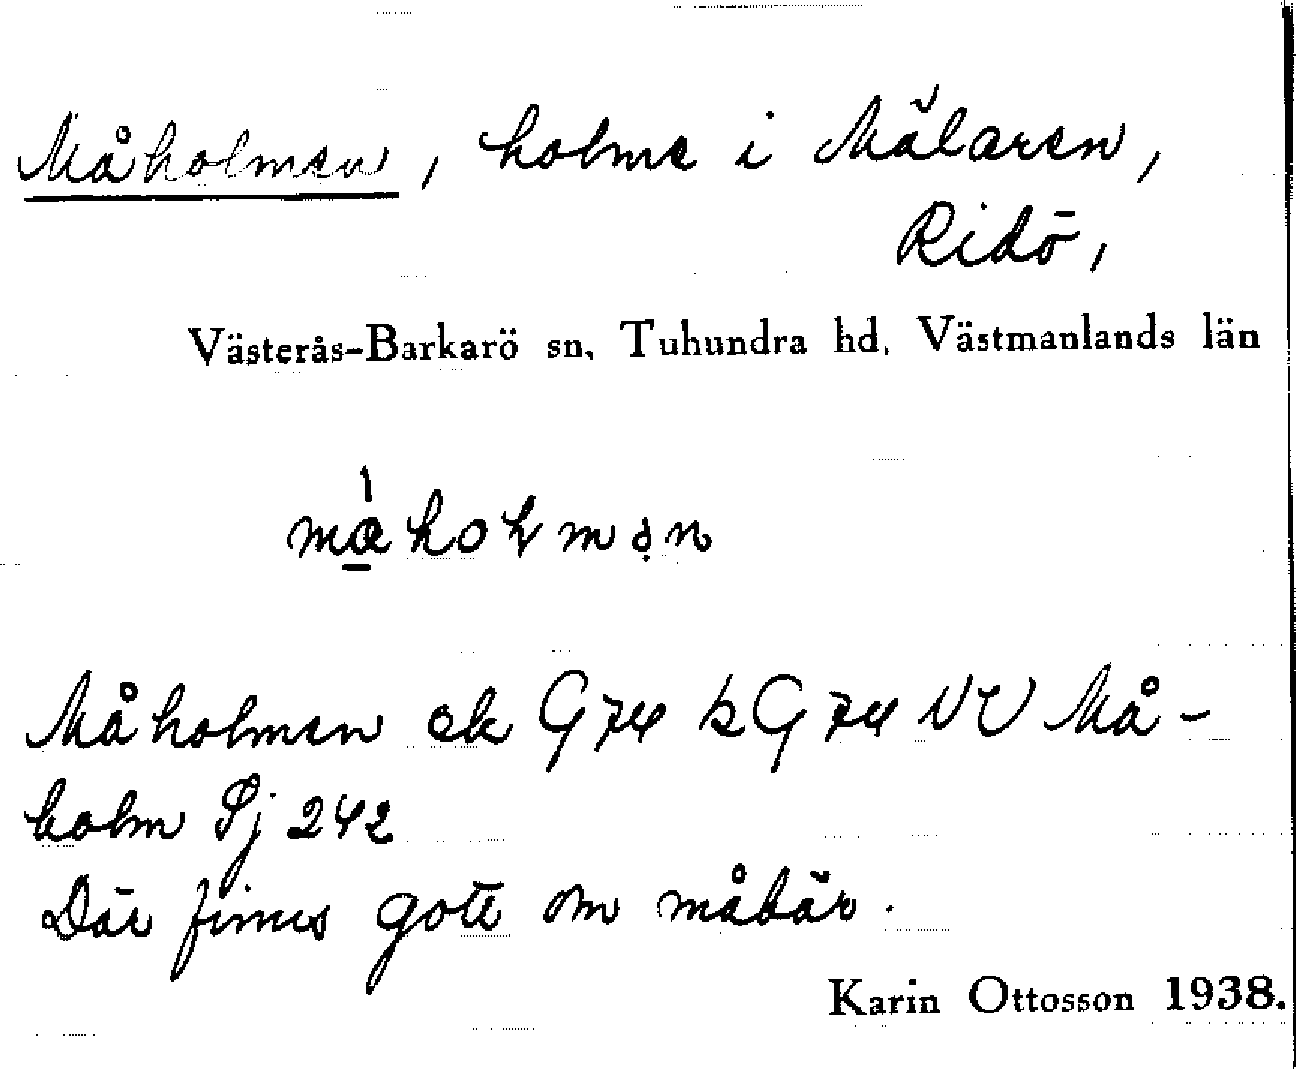 Måholmen, holme i Mälaren,
Ridö,
Västerås-Barkarö sn, Tuhundra hd, Västmanlands län
Måholmen ek G 74 k G 74 NV Må-
holm Sj 242
Där finns gott om måbär.
Karin Ottosson 1938.